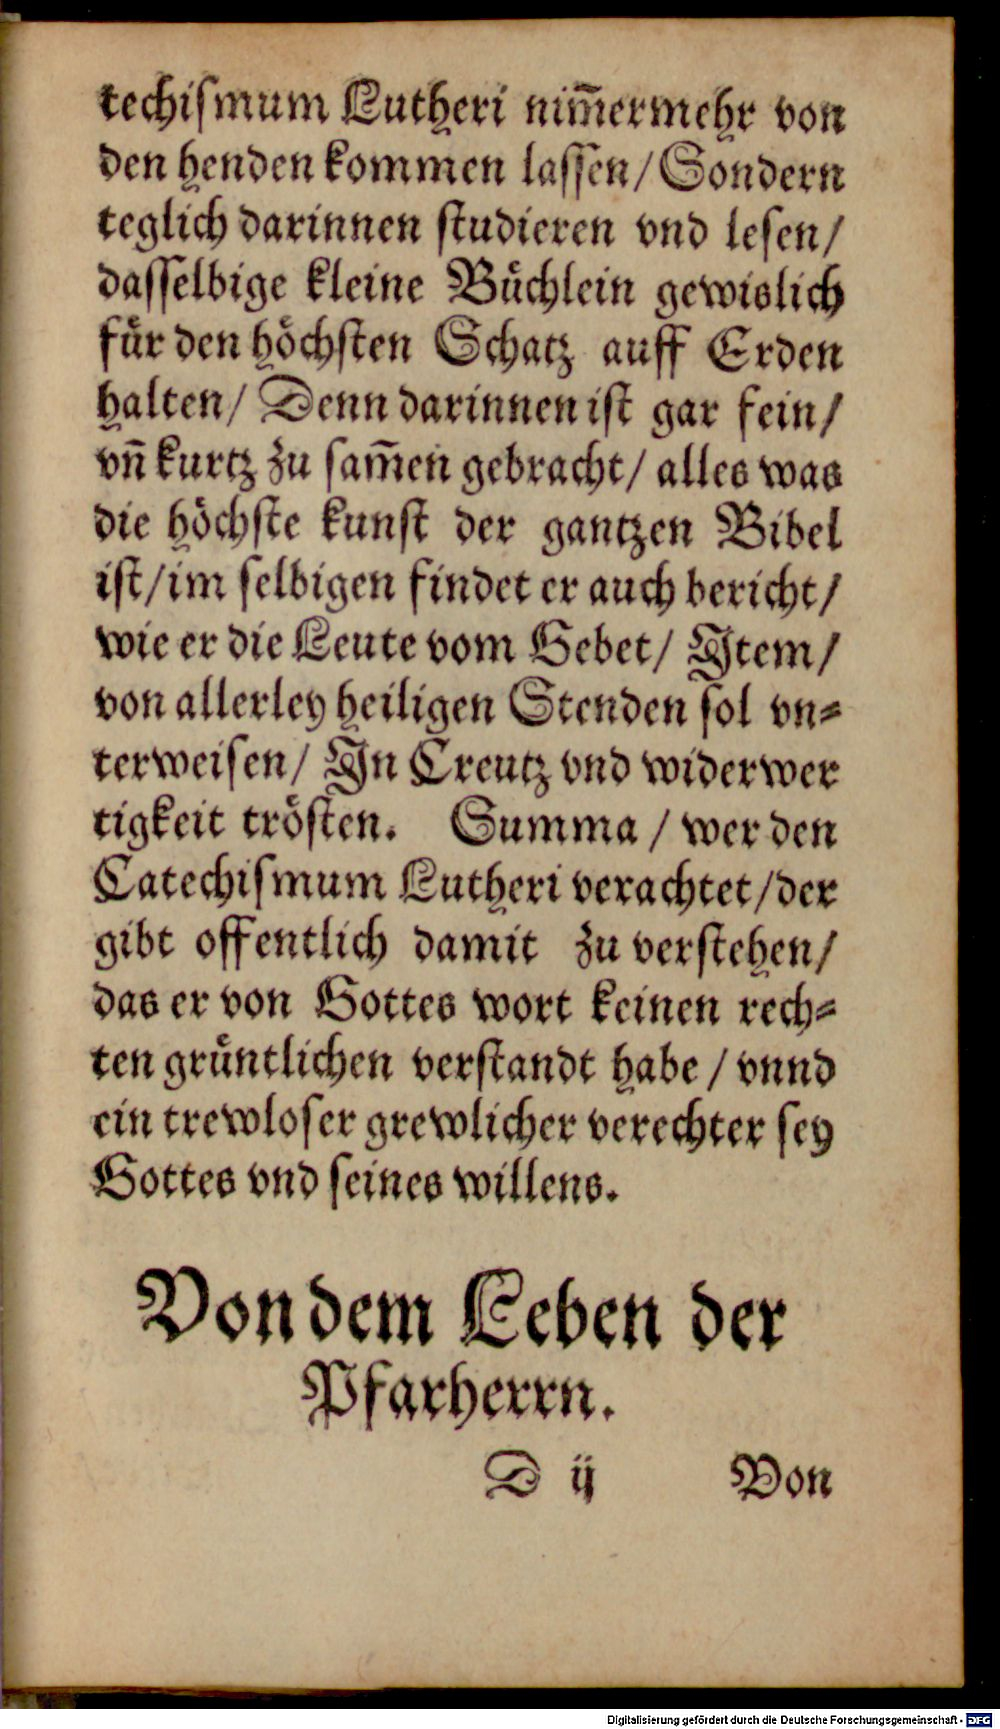 techiſmum Lutheri nim̅ermehr von
den henden kommen laſſen/ Sondern
teglich darinnen ſtudieren vnd leſen/
daſſelbige kleine Buͤchlein gewislich
fuͤr den hoͤchſten Schatz auff Erden
halten/ Denn darinnen iſt gar fein/
vn̅ kurtz zu ſam̅en gebracht/ alles was
die hoͤchſte kunſt der gantzen Bibel
iſt/ im ſelbigen findet er auch bericht/
wie er die Leute vom Gebet/ Item/
von allerley heiligen Stenden ſol vn⸗
terweiſen/ In Creutz vnd widerwer
tigkeit troͤſten. Summa / wer den
Catechiſmum Lutheri verachtet/ der
gibt offentlich damit zu verſtehen/
das er von Gottes wort keinen rech⸗
ten gruͤntlichen verſtandt habe / vnnd
ein trewloſer grewlicher verechter ſey
Gottes vnd ſeines willens.
Von dem Leben der
Pfarherrn.
D ij Von
Digitalisierung gefördert durch die Deutsche Forschungsgemeinschaft - DFG